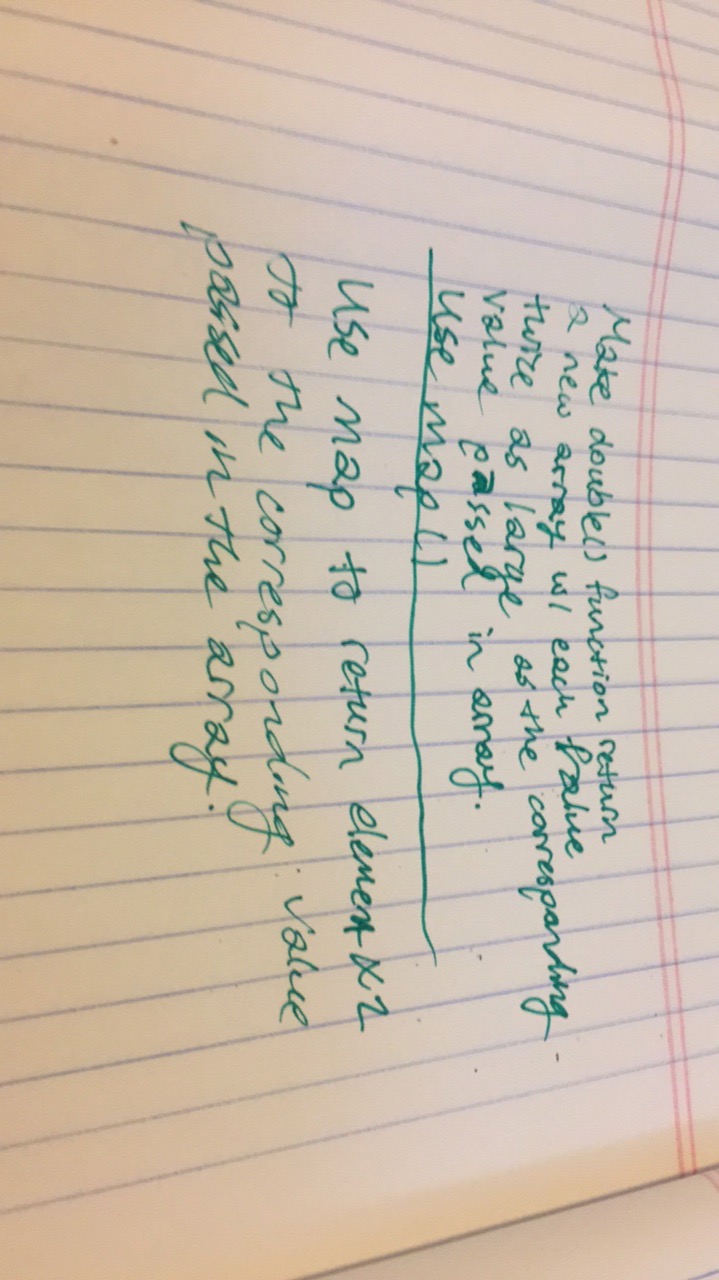 Make double() function return
a new array w/ each value
twice as large as the corresponding
value passed in array.
Use map()
Use map to return element x2
to the corresponding value
passed in the array.